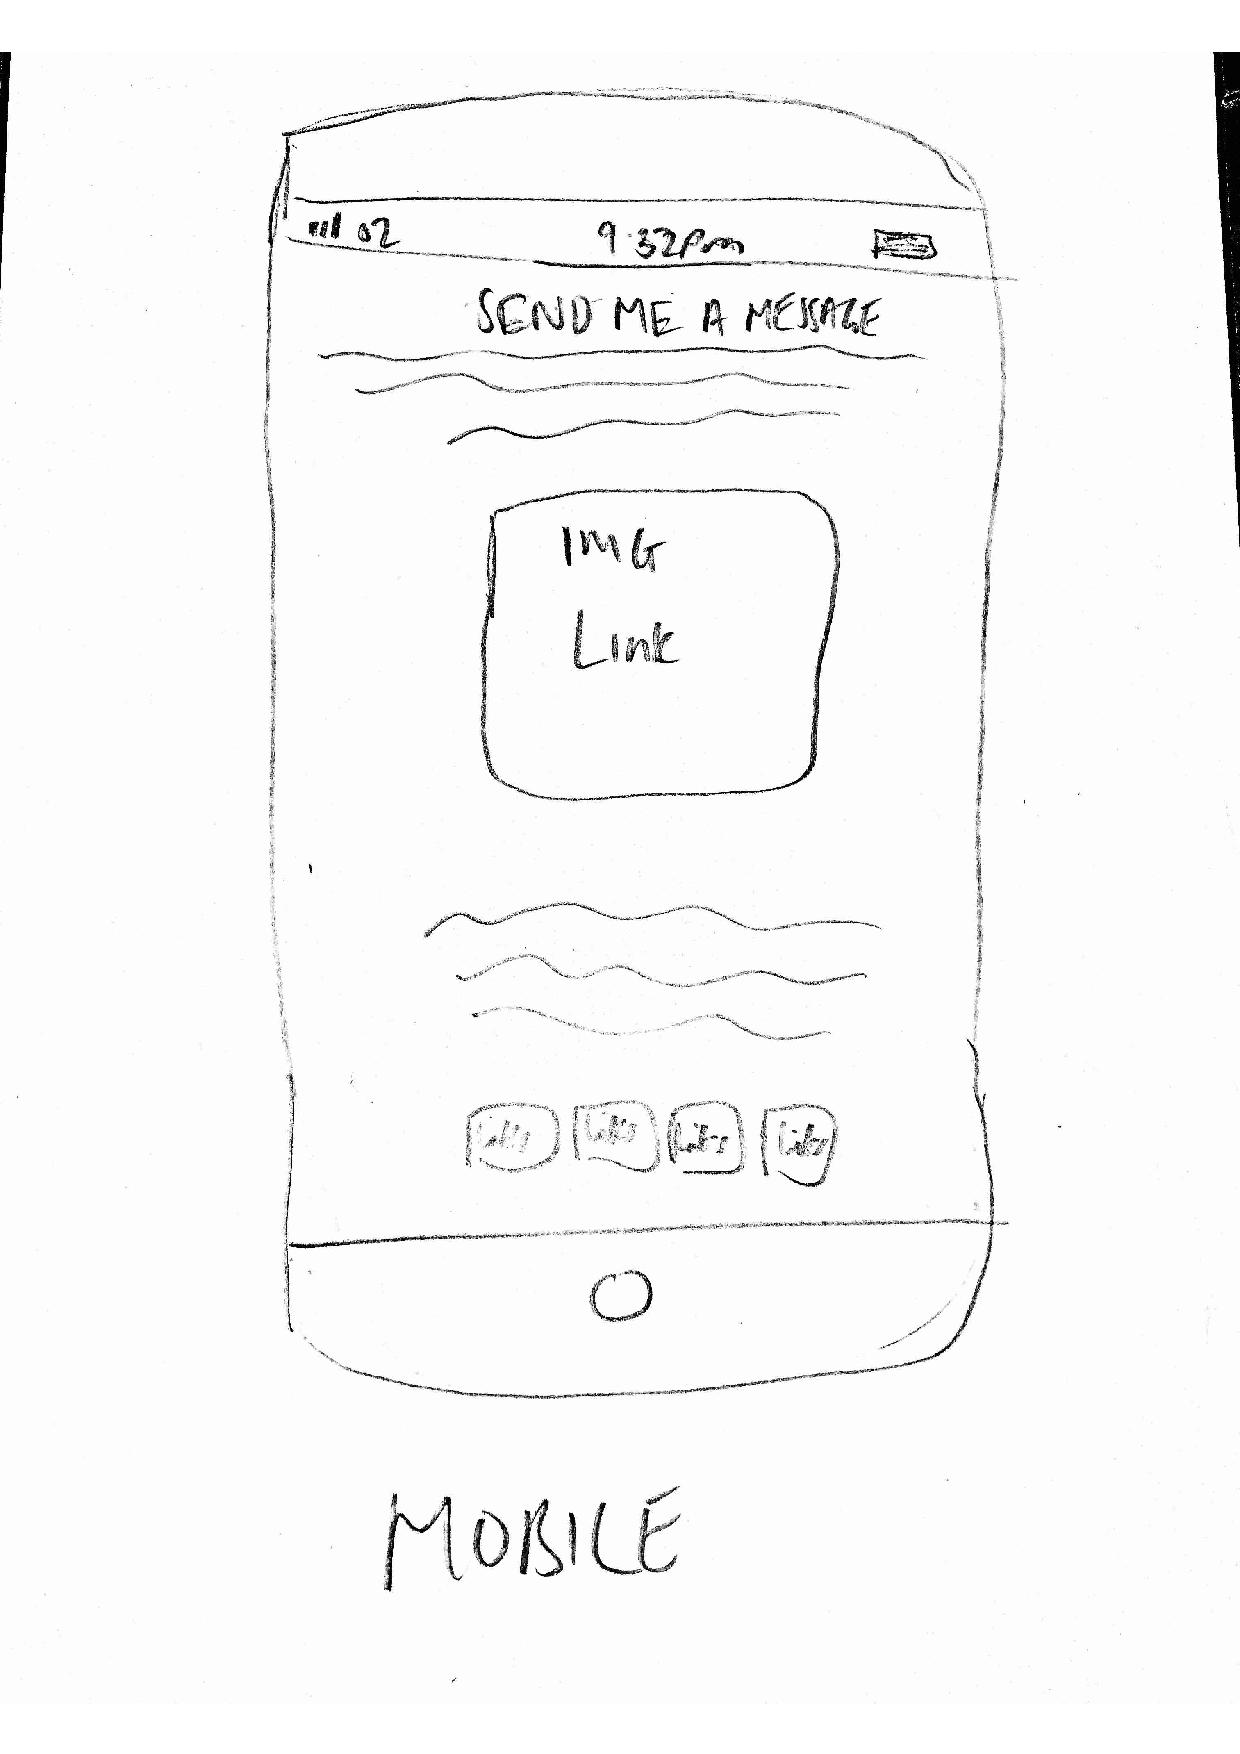 O2 9:32pm
SEND ME A MESSAGE
IMG
Link
Links Links Links Links
MOBILE